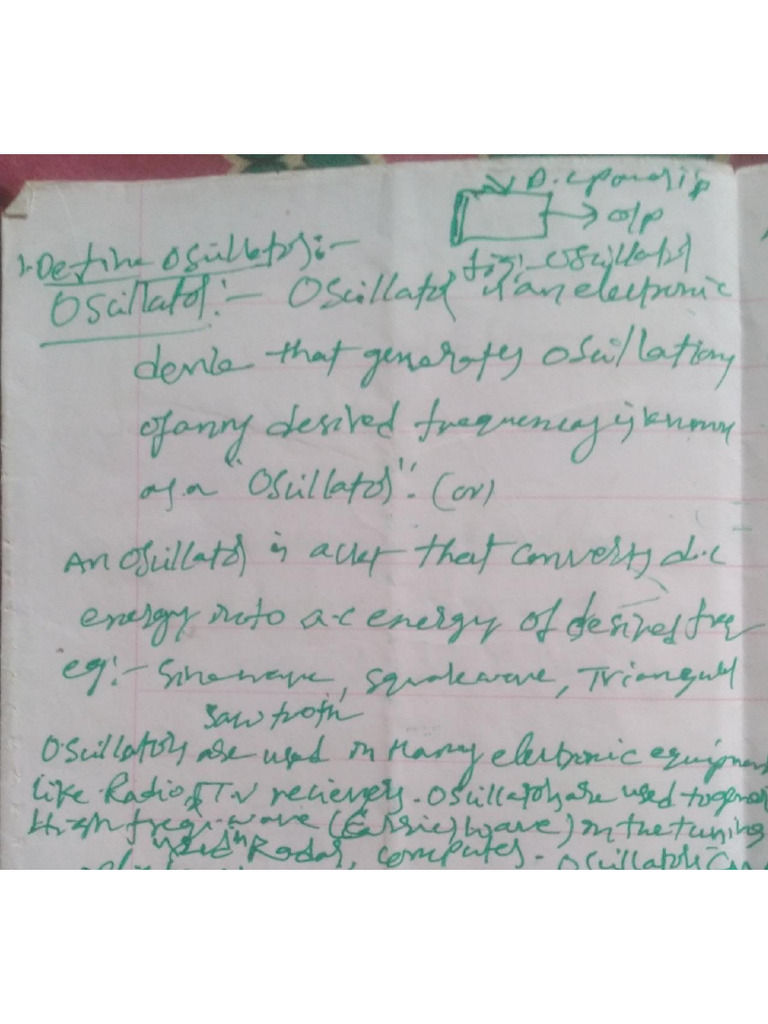 D.C power i/p
o/p
fig:- Oscillator
1. Define Oscillator:-
Oscillator:- Oscillator is an electronic
device that generates oscillations
of any desired frequency is known
as a "Oscillator". (or)
An Oscillator is a ckt that converts d.c
energy into a.c energy of desired freq
eg:- Sinewave, squarewave, Triangul
saw tooth
Oscillators are used in many electronic equipmen
like Radio & TV recievers. Oscillators are used to gener
High freq. wave (Carrier wave) in the tuning
used in Radar, computers. Oscillators